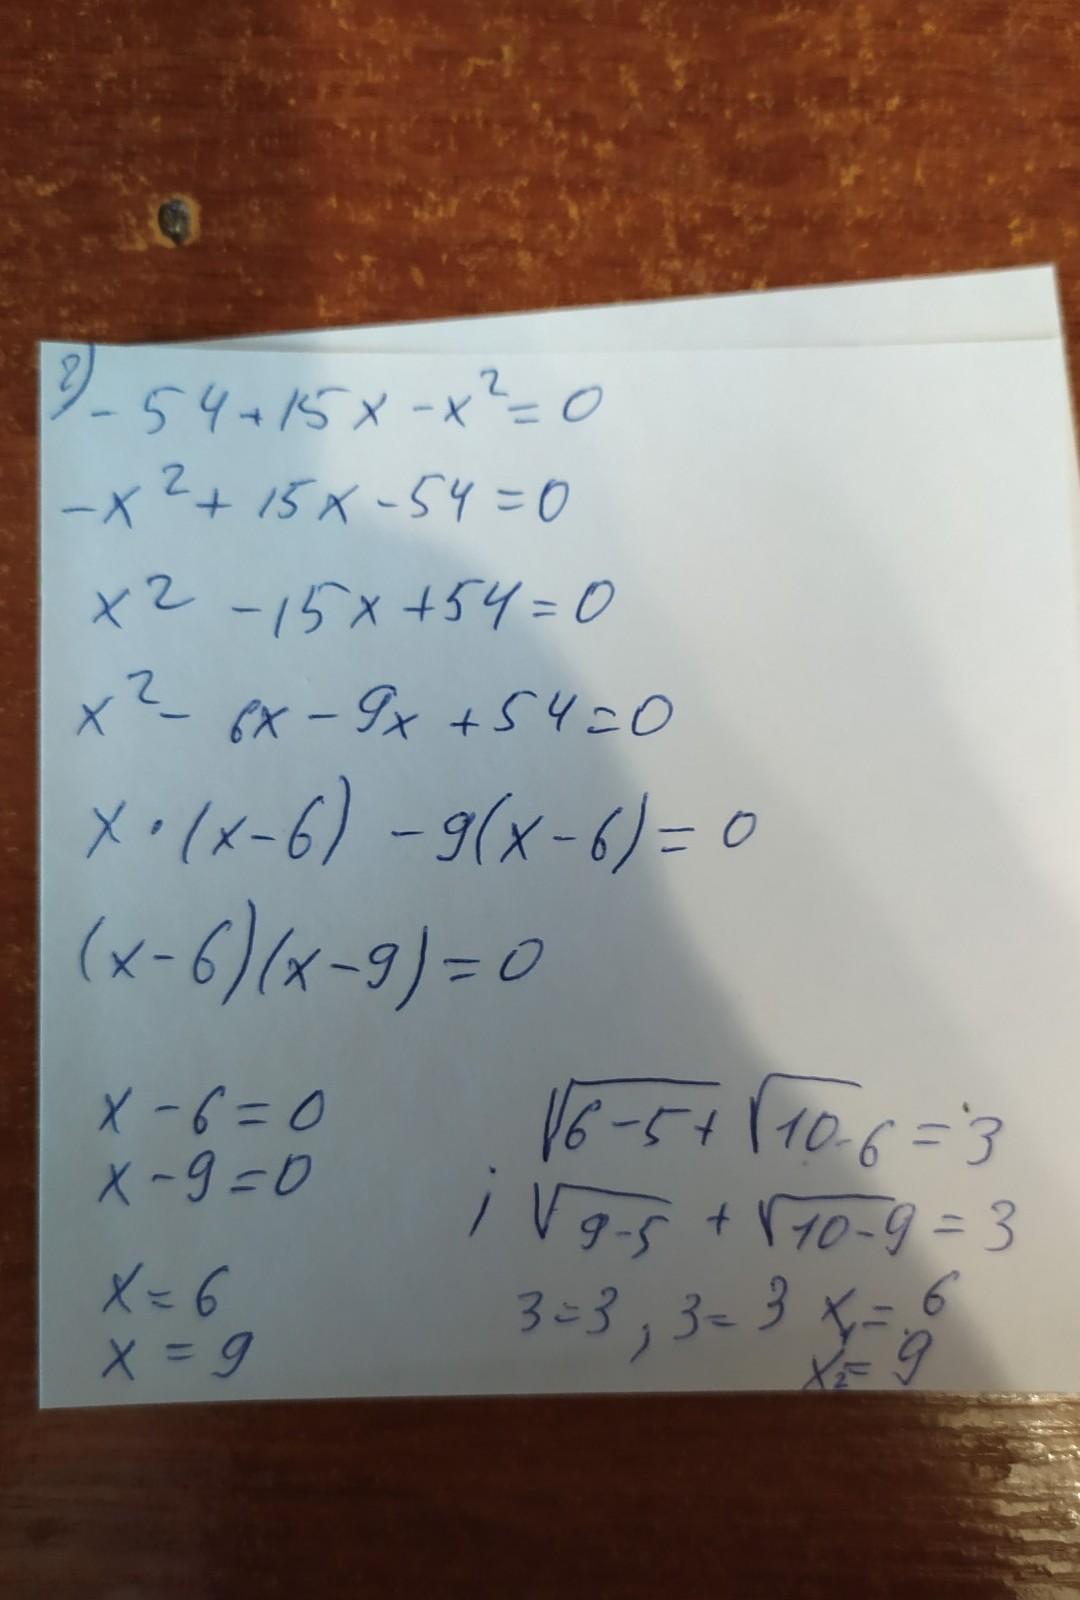 2) -54+15x-x²=0
-x²+15x-54=0
x²-15x+54=0
x²-6x-9x+54=0
x·(x-6)-9(x-6)=0
(x-6)(x-9)=0
x-6=0
x-9=0
x=6
x=9
√6-5+√10-6=3
; √9-5+√10-9=3
3=3, 3=3 x₁=6
x₂=9